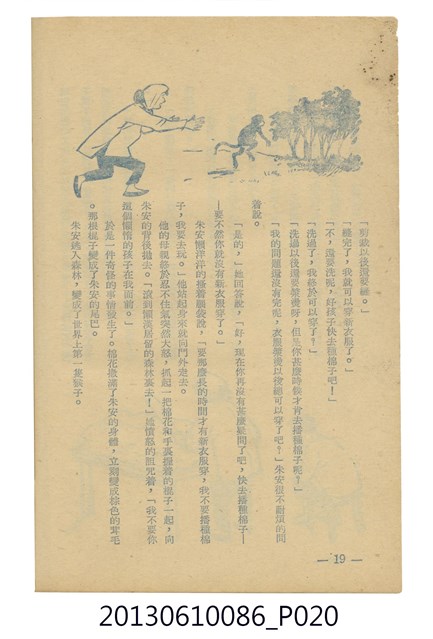 「剪裁以後還要縫。」
「縫完了，我就可以穿新衣服了。」
「不，還要洗呢，好孩子快去種棉子吧！」
「洗過了，我終於可以穿了？」
「洗過以後還要漿燙呀，但是你甚麼時候才肯去播種棉子呢？」
「我的問題還沒有完呢，衣服漿燙以後總可以穿了吧？」朱安很不耐煩的問
着說。
「是的，」她回答說，「好，現在你再沒有甚麼疑問了吧，快去播種棉子—
—要不然你就沒有新衣服穿了。」
朱安懶洋洋的搔着腦袋說，「要那麼長的時間才有新衣服穿，我不要播種棉
子，我要去玩。」他站起身來就向門外走去。
他的母親終於忍不住氣突然大怒，抓起一把棉花和手裏握着的棍子一起，向
朱安的背後拋去。「滾到懶漢居留的森林裏去！」她憤怒的詛咒着，「我不要你
這個懶惰的孩子在我面前。」
於是一件奇怪的事情發生了。棉花撒滿了朱安的身體，立刻變成棕色的茸毛
。那根棍子變成了朱安的尾巴。
朱安逃入森林，變成了世界上第一隻猴子。
— 19 —
20130610086_P020